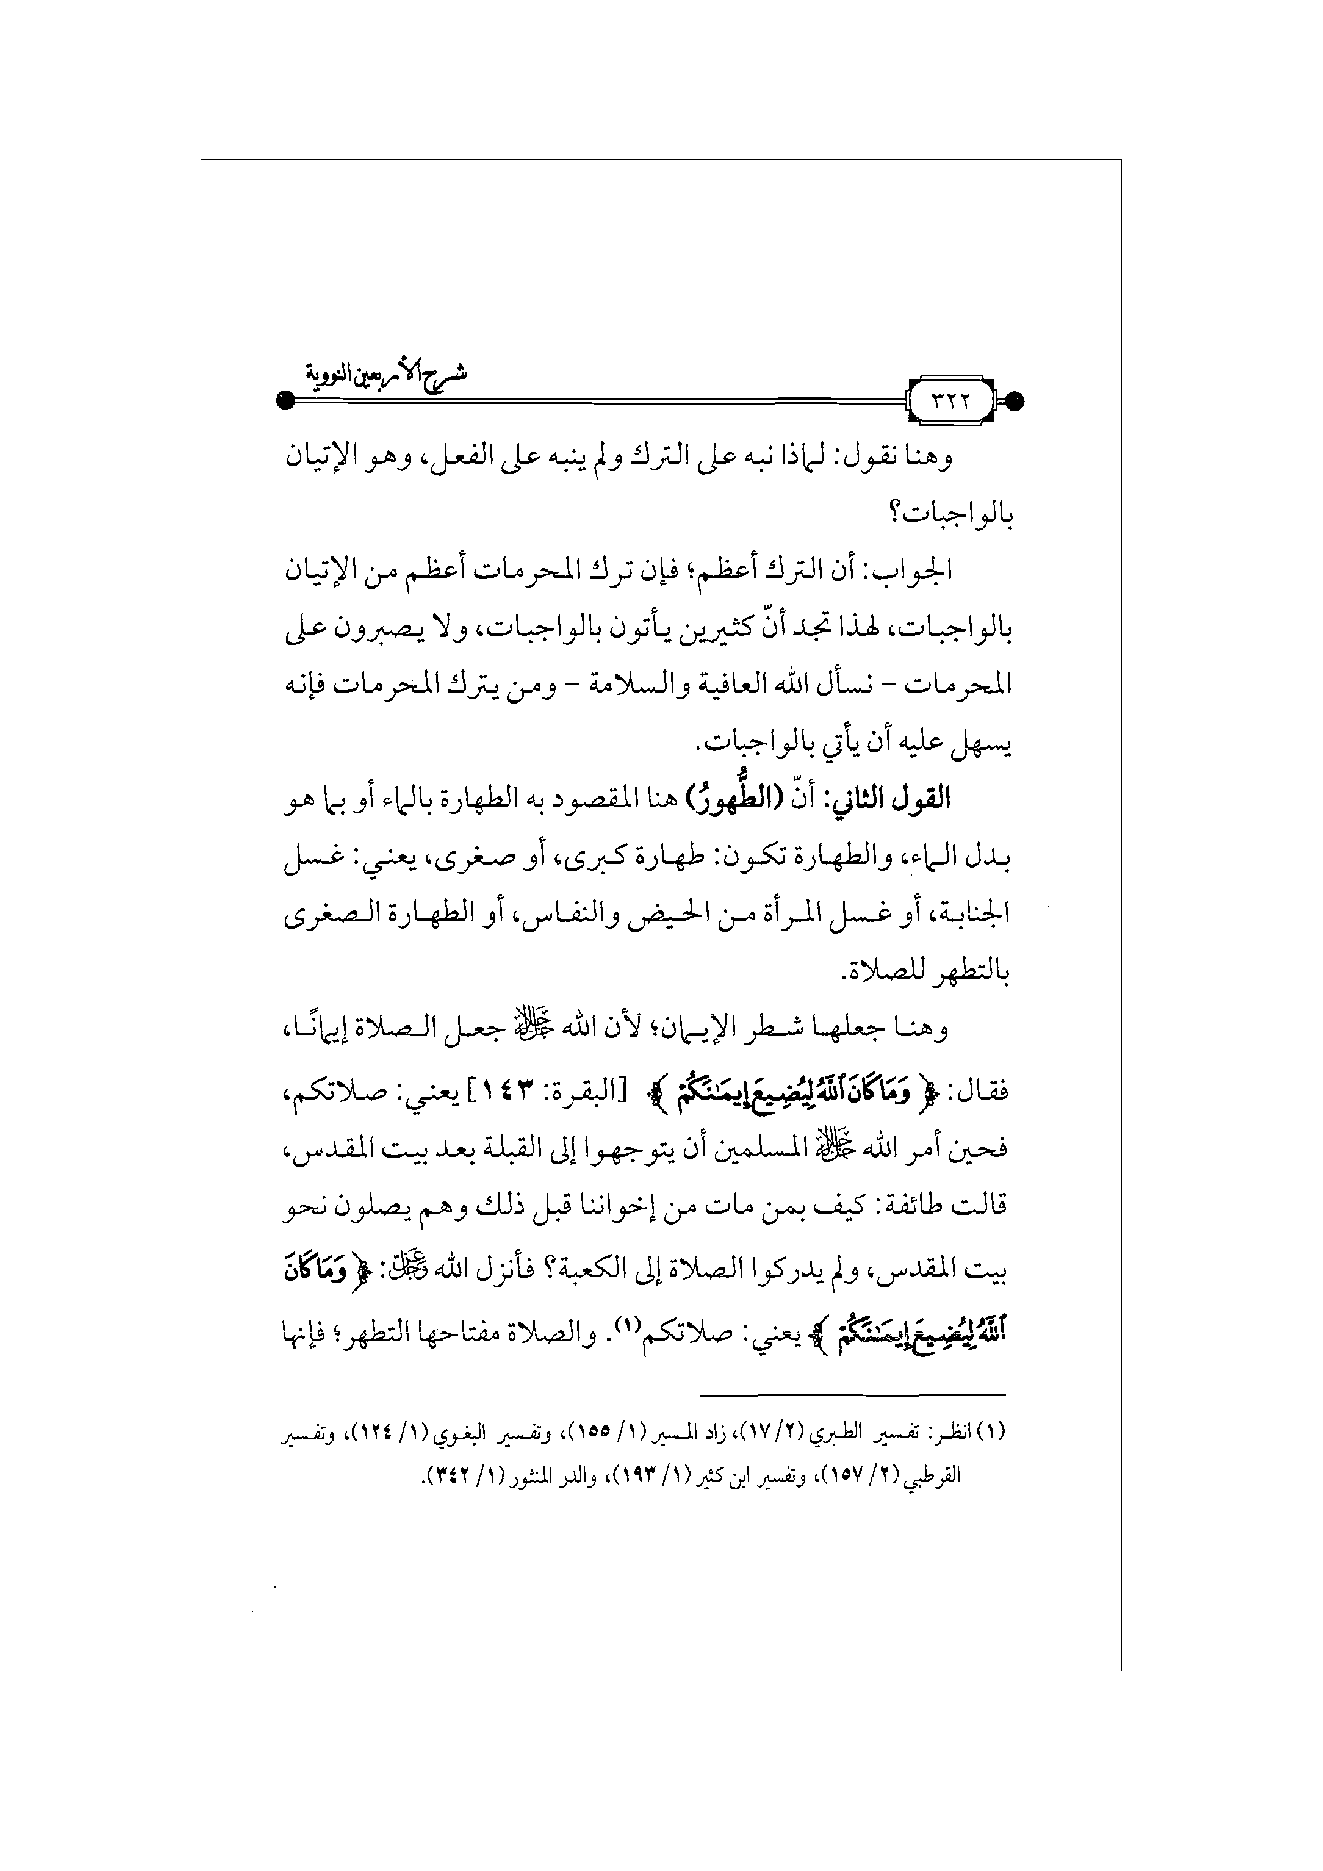 شرح الأربعين النووية
٣٢٢
وهنا نقول: لماذا نبه على الترك ولم ينبه على الفعل، وهو الإتيان
بالواجبات؟
الجواب: أن الترك أعظم؛ فإن ترك المحرمات أعظم من الإتيان
بالواجبات، لهذا تجد أنّ كثيرين يأتون بالواجبات، ولا يصبرون على
المحرمات - نسأل الله العافية والسلامة - ومن يترك المحرمات فإنه
يسهل عليه أن يأتي بالواجبات.
القول الثاني: أنّ (الطُّهورُ) هنا المقصود به الطهارة بالماء أو بما هو
بدل الماء، والطهارة تكون: طهارة كبرى، أو صغرى، يعني: غسل
الجنابة، أو غسل المرأة من الحيض والنفاس، أو الطهارة الصغرى
بالتطهر للصلاة.
وهنا جعلها شطر الإيمان؛ لأن الله ﷻ جعل الصلاة إيمانًا،
فقال: ﴿ وَمَا كَانَ ٱللَّهُ لِيُضِيعَ إِيمَـٰنَكُمْ ﴾ [البقرة: ١٤٣] يعني: صلاتكم،
فحين أمر الله ﷻ المسلمين أن يتوجهوا إلى القبلة بعد بيت المقدس،
قالت طائفة: كيف بمن مات من إخواننا قبل ذلك وهم يصلون نحو
بيت المقدس، ولم يدركوا الصلاة إلى الكعبة؟ فأنزل الله عَزَّ وَجَلَّ: ﴿ وَمَا كَانَ
ٱللَّهُ لِيُضِيعَ إِيمَـٰنَكُمْ ﴾ يعني: صلاتكم(١). والصلاة مفتاحها التطهر؛ فإنها
(١) انظر: تفسير الطبري (٢/ ١٧)، زاد المسير (١/ ١٥٥)، وتفسير البغوي (١/ ١٢٤)، وتفسير
القرطبي (٢/ ١٥٧)، وتفسير ابن كثير (١/ ١٩٣)، والدر المنثور (١/ ٣٤٢).